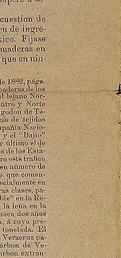 cuestion de
en de ingre-
xico. Fíjase
maderas en
que en nin-
de 1882, págs.
naderas de los
el lejano Nor-
ntro y Norte
lgodon de Te-
de tejidos
mpañia Nacio-
y el "Bajío"
último el de
s de los Esta-
ro este tráfico
en número de
que consu-
cialmente en
as clases, pa-
ble" en la Re-
la leña en la
hace dos años
á cuyo pre-
tonelada. El
Veracruz pa-
arbon de Ve-
arbon extran-